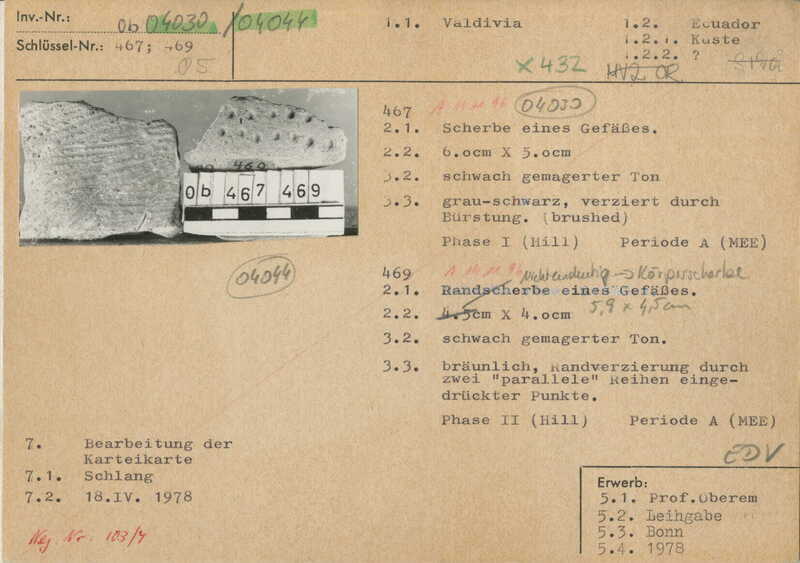 Inv.-Nr.: Ob 04030 / 04044
Schlüssel-Nr.: 467; 469
05
1.1. Valdivia
1.2. Ecuador
1.2.1. Küste
1.2.2. ?
X 432
467 04030
2.1. Scherbe eines Gefäßes.
2.2. 6.0cm X 5.0cm
3.2. schwach gemagerter Ton
3.3. grau-schwarz, verziert durch
Bürstung. (brushed)
Phase I (Hill) Periode A (MEE)
469
Ob 467 469
04044
469 nicht eindeutig → Körperscherbe
2.1. Randscherbe eines Gefäßes.
5,9 x 4,5cm
2.2. 4.5cm X 4.0cm
3.2. schwach gemagerter Ton.
3.3. bräunlich, Randverzierung durch
zwei "parallele" Reihen einge-
drückter Punkte.
Phase II (Hill) Periode A (MEE)
7. Bearbeitung der
Karteikarte
7.1. Schlang
7.2. 18.IV. 1978
Neg. Nr. 103/4
EDV
Erwerb:
5.1. Prof.Oberem
5.2. Leihgabe
5.3. Bonn
5.4. 1978